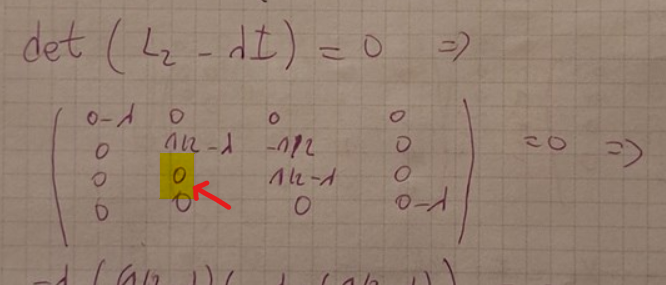 det ( L₂ - λI ) = 0 =>
0-λ 0 0 0
0 1/2-λ -1/2 0 =0 =>
0 0 1/2-λ 0
0 0 0 0-λ